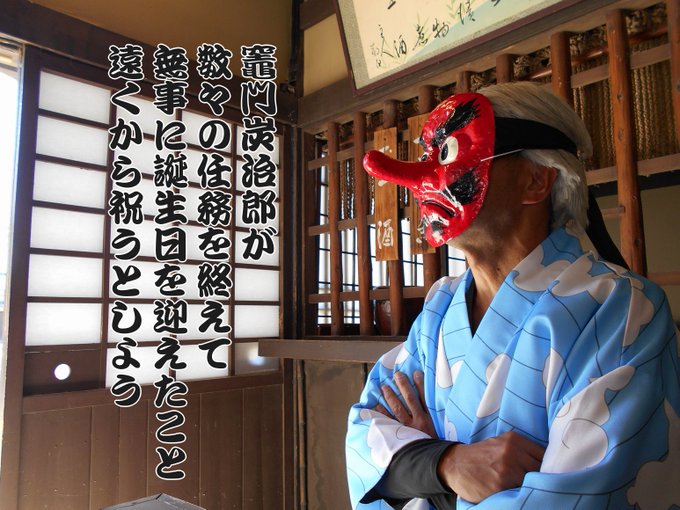 竈門炭治郎が
数々の任務を終えて
無事に誕生日を迎えたこと
遠くから祝うとしよう
酒